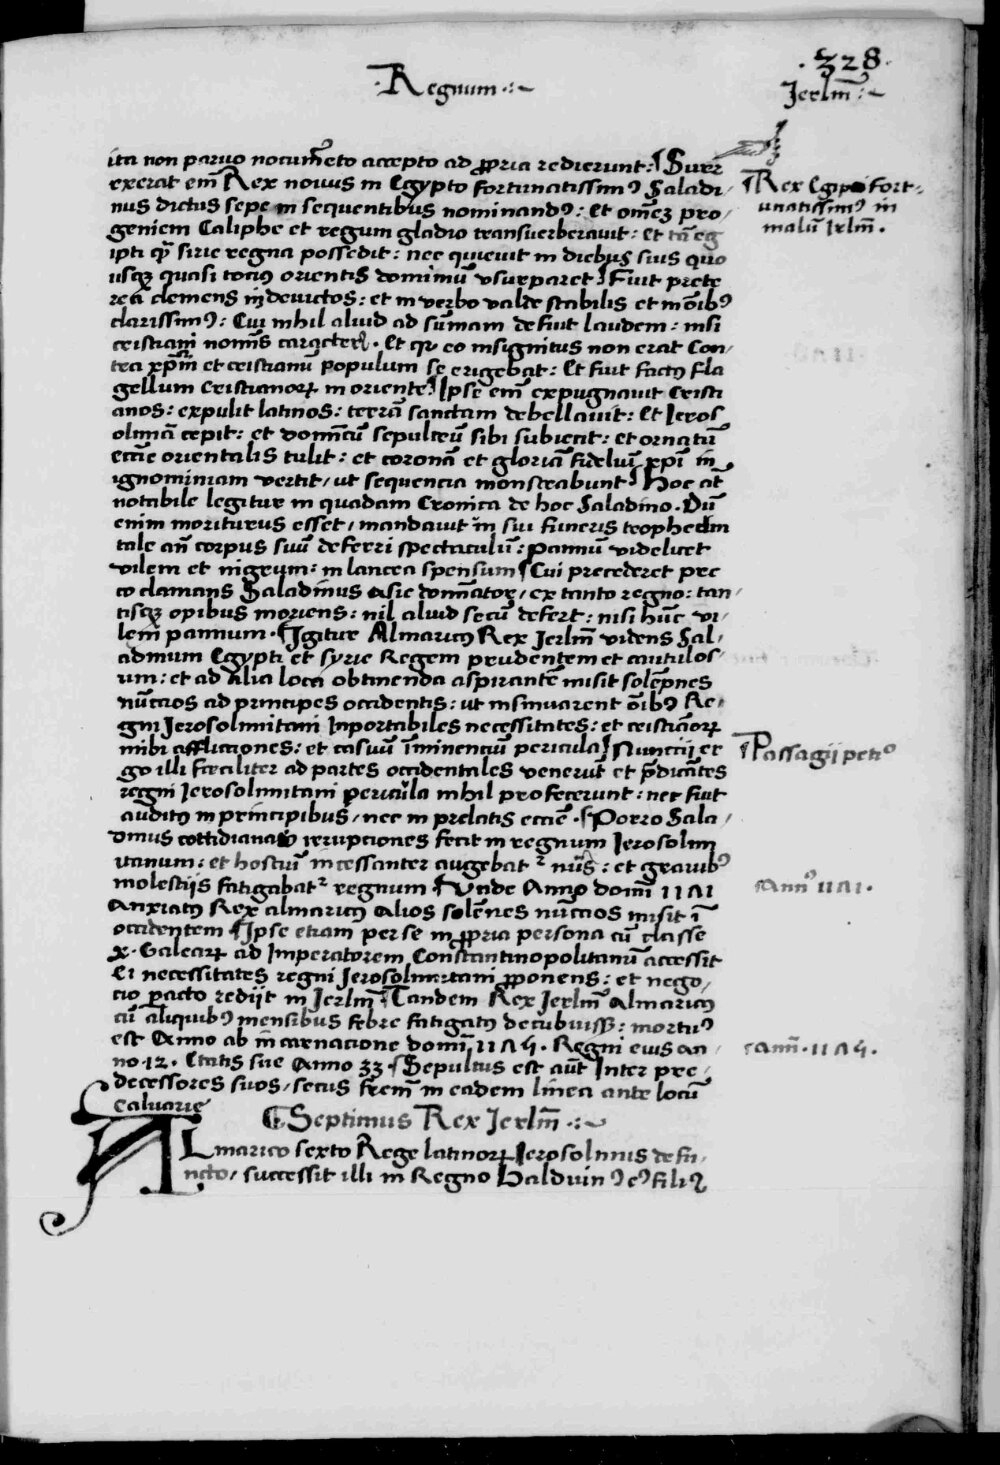 .328.
Regnum
Jerlm̄
ita non paruo nocum̄eto accepto ad ꝓpria redierunt: Surr
exerat em̄ Rex nouus in Egypto fortunatissimꝰ Saladi/
nus dictus sepe in sequentibus nominandꝰ: Et om̄eʒ pro/
geniem Caliphe et regum gladio transuerberauit: Et tā eg
ipti qͣ sirie regna possedit: nec quieuit in diebus suis quo
usqʒ quasi tociꝰ orientis dominiū vsurparet Fuit prete
rea clemens in deuictos: et in verbo valde stabilis et in ōibꝰ
clarissimꝰ: Cui nihil aliud ad sūmam defuit laudem: nisi
cristiani nomīs caracter. Et qꝛ eo insignitus non erat Con/
tra xp̄m et cristianū populum se erigebat: Et fuit factꝰ fla
gellum Cristianoꝝ in oriente Ipse em̄ expugnauit Cristi
anos: expulit latinos: terrā sanctam debellauit: Et Jeros
olimā cepit: et domīcū sepulcrū sibi subiecit: et ornatū
ecc̄ie orientalis tulit: et coronā et gloriā fideliū xp̄i in
ignominiam vertit/ ut sequencia monstrabunt Hoc at̄
notabile legitur in quadam Cronica de hoc Saladino. Dū
enim moriturus esset/ mandauit in sui funeris tropheum
tale an̄ corpus suū deferri spectaculū: pannū videlicet
vilem et nigrum: in lancea spensum Cui precederet pre
co clamans Saladinus asie domīator/ ex tanto regno: tan/
tisqʒ opibus moriens: nil aliud secū defert: nisi hūc vi/
lem pannum. Igitur Almaricꝰ Rex Jerlm̄ videns Sal/
adinum Egypti et syrie Regem prudentem et cautulos/
um: et ad alia loca obtinenda aspirantē misit solēpnes
nūccios ad principes occidentis: ut insinuarent ōibꝰ Re/
gni Jerosolimitani Inportabiles necessitates: et cristianoꝝ
inibi afflictiones: et casuū īminenciū pericula Nunctij er
go illi fœciliter ad partes occidentales venerūt et p̄dicātes
regni Jerosolimitani pericula nihil profecerunt: nec fuit
auditꝰ in principibus/ nec in prelatis ecc̄ie. Porro Sala/
dinus cottidianas irrupciones fecit in regnum Jerosolim
itanum: et hostiū incessanter augebatᷣ nūs: et grauibꝰ
molestijs fatigabatᷣ regnum Vnde Anno domī 11Λ1
Anxiatꝰ Rex almaricꝰ alios solēnes nūccios misit ī
occidentem Ipse etiam per se in ꝓpria persona cū classe
x. Galearꝝ ad Imperatorem Constantinopolitanū accessit
Ei necessitates regni Jerosolimitani ꝓponens: et nego/
cio ꝑacto redijt in Jerlm̄ Tandem Rex Jerlm̄ Almaricꝰ
cū aliquibꝰ mensibus febre fatigatꝰ decubuissʒ: mortuꝰ
est Anno ab incarnacione domī 11Λ4. Regni eius an/
no. 12. Etatis sue Anno 33. Sepultus est aūt Inter pre/
decessores suos/ secus frem̄ in eadem linea ante locū
Caluarie
Septimus Rex Jerlm̄
ALmarico sexto Rege latinoꝝ Jerosolimis defū/
ncto/ successit illi in Regno Balduinꝰ eꝰ filiꝰ
Rex Egipti fort:
unatissimꝰ in
malū Irlm̄.
Passagij peticͦ
Annͦ 11Λ1.
Ann̄. 11Λ4.